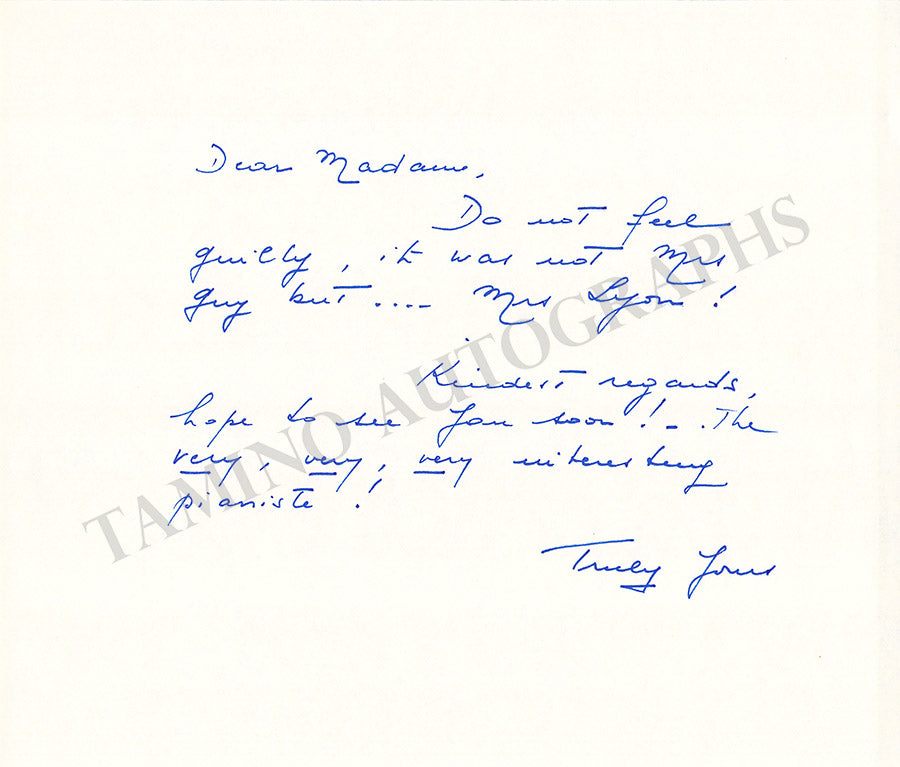 Dear Madame,
Do not feel
guilty, it was not Mrs
Guy but .... Mrs Lyon !
Kindest regards,
hope to see you soon ! _ . The
very, very, very interesting
pianiste !
Truly Yours
TAMINO AUTOGRAPHS